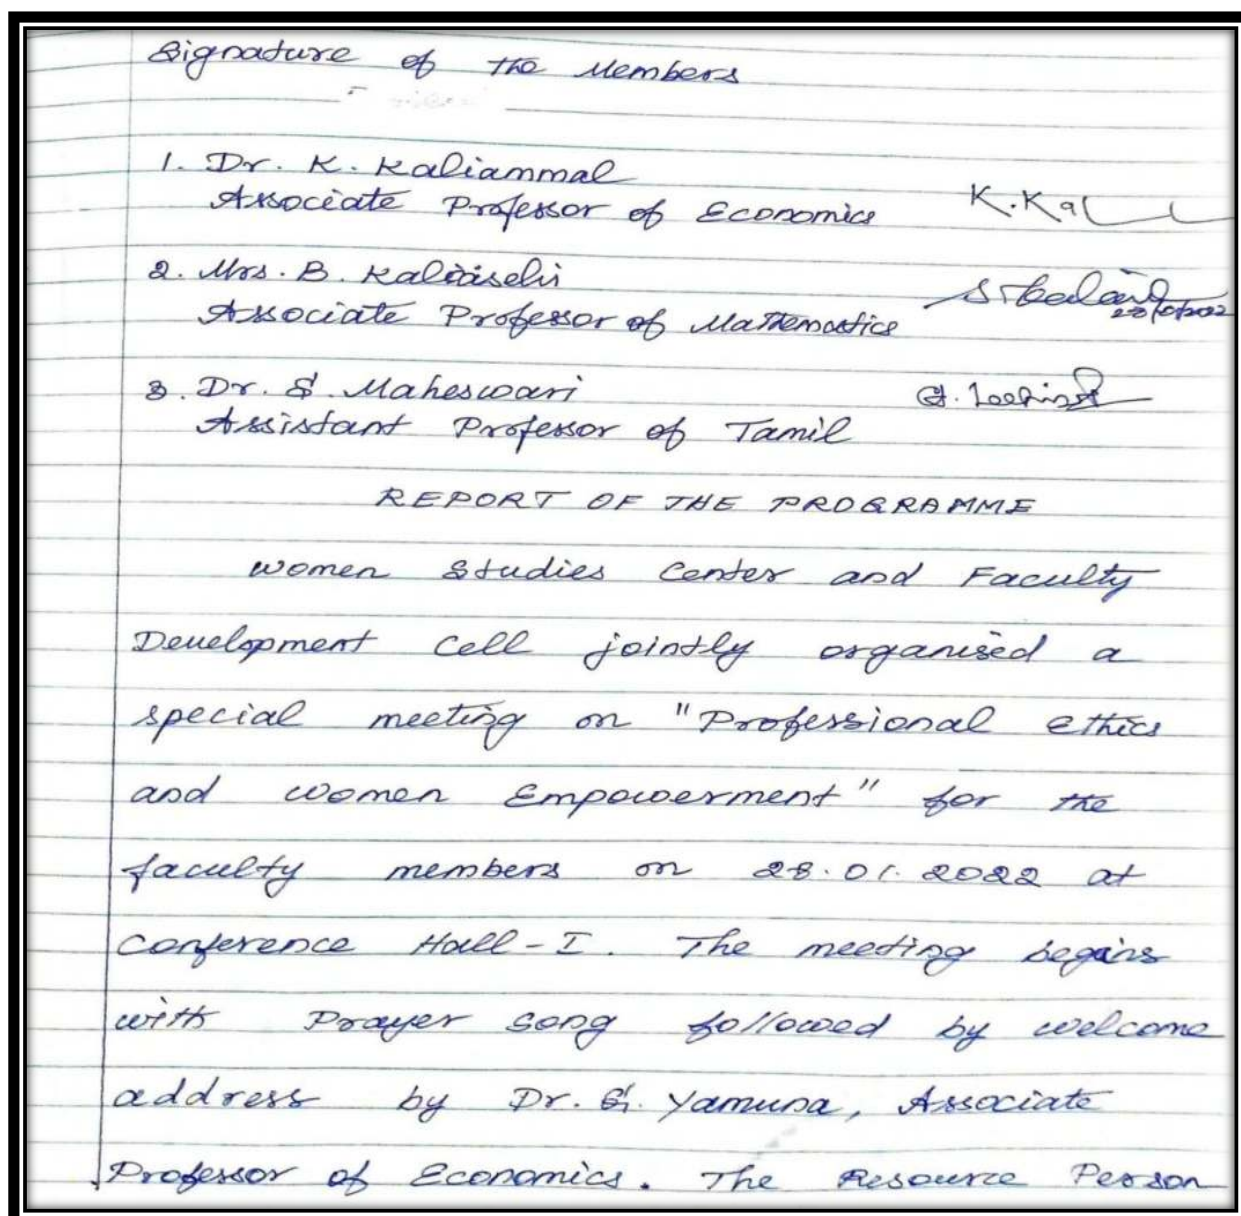 Signature of the Members
1. Dr. K. Kaliammal
Associate Professor of Economics
K.Ka
2. Mrs. B. Kalaiselvi
Associate Professor of Mathematics
3. Dr. S. Maheswari
Assistant Professor of Tamil
REPORT OF THE PROGRAMME
women Studies Center and Faculty
Development Cell jointly organised a
special meeting on "Professional ethics
and women Empowerment" for the
faculty members on 28.01.2022 at
Conference Hall-I. The meeting begins
with Prayer song followed by welcome
address by Dr. G. Yamuna, Associate
Professor of Economics. The Resource Person